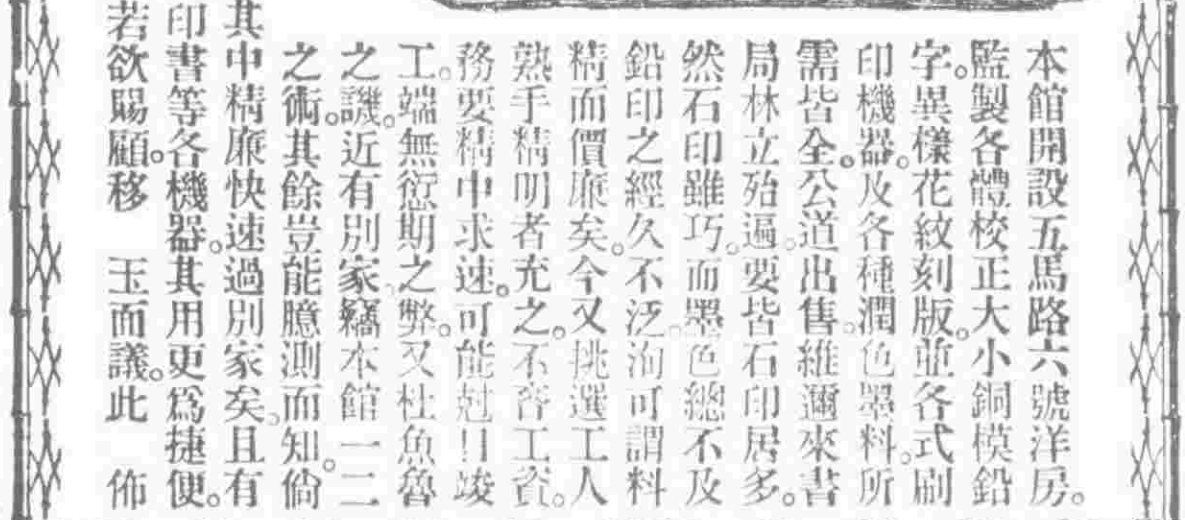 本館開設五馬路六號洋房。
監製各體校正大小銅模鉛
字。異樣花紋刻版。並各式刷
印機器。及各種潤色墨料。所
需皆全。公道出售。維邇來書
局林立殆遍。要皆石印居多。
然石印雖巧。而墨色總不及
鉛印之經久不泛。洵可謂料
精而價廉矣。今又挑選工人
熟手精明者充之。不吝工資。
務要精中求速。可能尅日竣
工。端無愆期之弊。又杜魚魯
之譏。近有別家竊本館一二
之術。其餘豈能臆測而知。倘
其中精廉快速過別家矣。且有
印書等各機器。其用更為捷便。
若欲賜顧。移 玉而議。此 佈